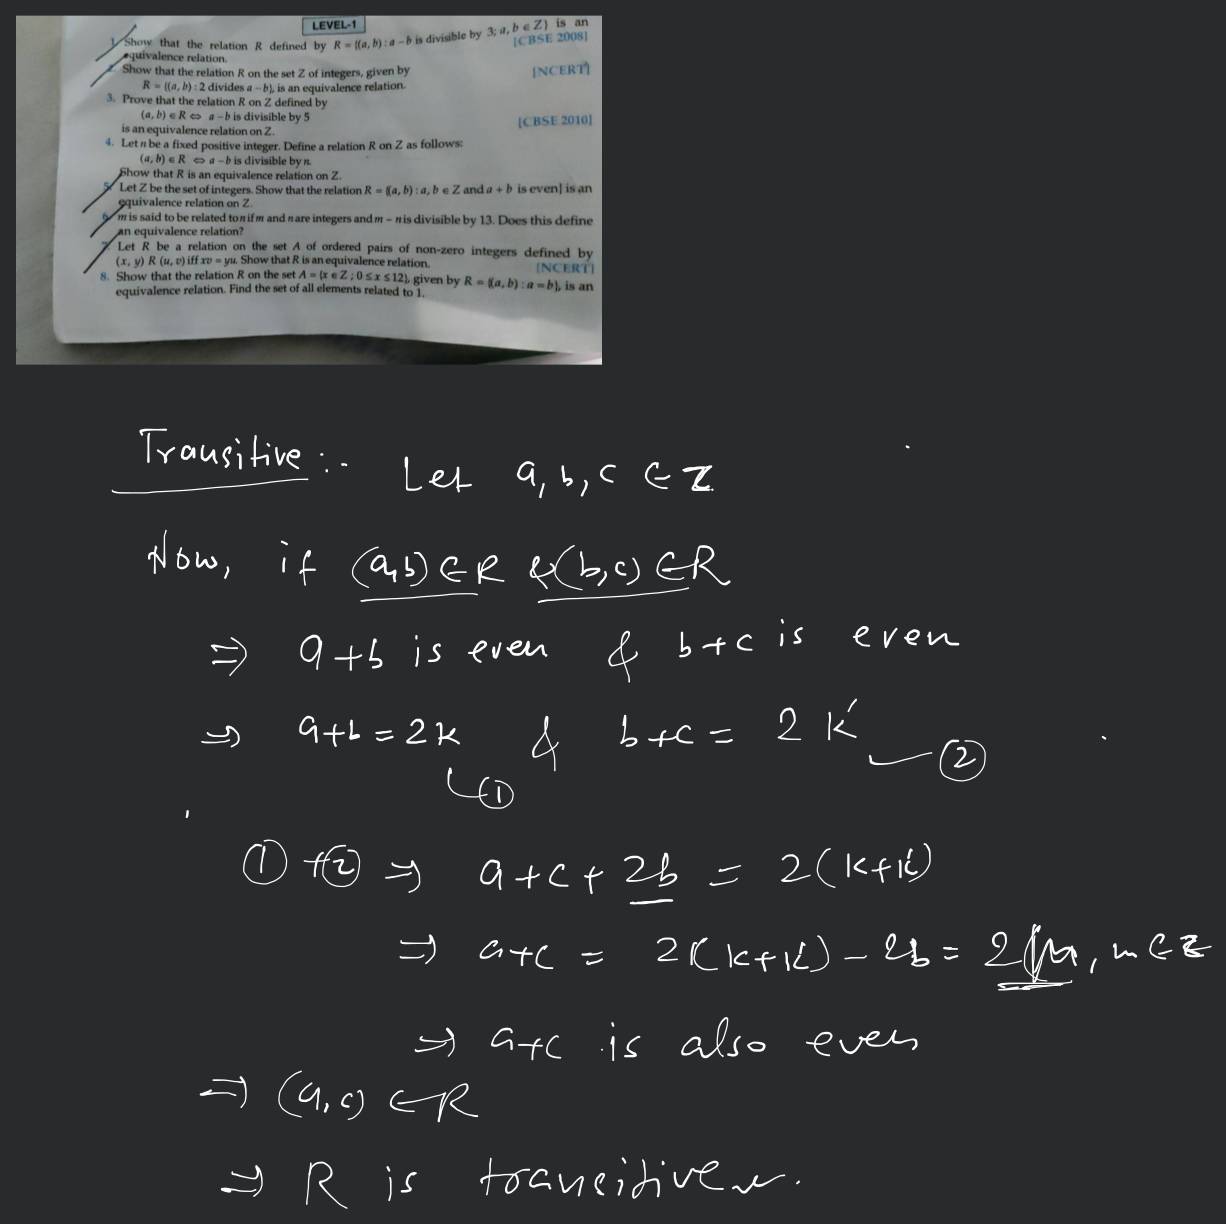 LEVEL-1
1. Show that the relation R defined by R = {(a, b) : a – b is divisible by 3; a, b ∈ Z} is an
equivalence relation. [CBSE 2008]
2. Show that the relation R on the set Z of integers, given by
R = {(a, b) : 2 divides a – b}, is an equivalence relation. [NCERT]
3. Prove that the relation R on Z defined by
(a, b) ∈ R ⇔ a – b is divisible by 5
is an equivalence relation on Z. [CBSE 2010]
4. Let n be a fixed positive integer. Define a relation R on Z as follows:
(a, b) ∈ R ⇔ a – b is divisible by n.
Show that R is an equivalence relation on Z.
5. Let Z be the set of integers. Show that the relation R = {(a, b) : a, b ∈ Z and a + b is even} is an
equivalence relation on Z.
6. m is said to be related to n if m and n are integers and m – n is divisible by 13. Does this define
an equivalence relation?
7. Let R be a relation on the set A of ordered pairs of non-zero integers defined by
(x, y) R (u, v) iff xv = yu. Show that R is an equivalence relation. [NCERT]
8. Show that the relation R on the set A = {x ∈ Z ; 0 ≤ x ≤ 12}, given by R = {(a, b) : a = b}, is an
equivalence relation. Find the set of all elements related to 1.
Transitive :- Let a, b, c ∈ Z
Now, if (a,b) ∈ R & (b,c) ∈ R
⇒ a+b is even & b+c is even
⇒ a+b = 2k & b+c = 2k'
① ②
① + ② ⇒ a+c+2b = 2(k+k')
⇒ a+c = 2(k+k') – 2b = 2m, m ∈ Z
⇒ a+c is also even
⇒ (a,c) ∈ R
⇒ R is transitive